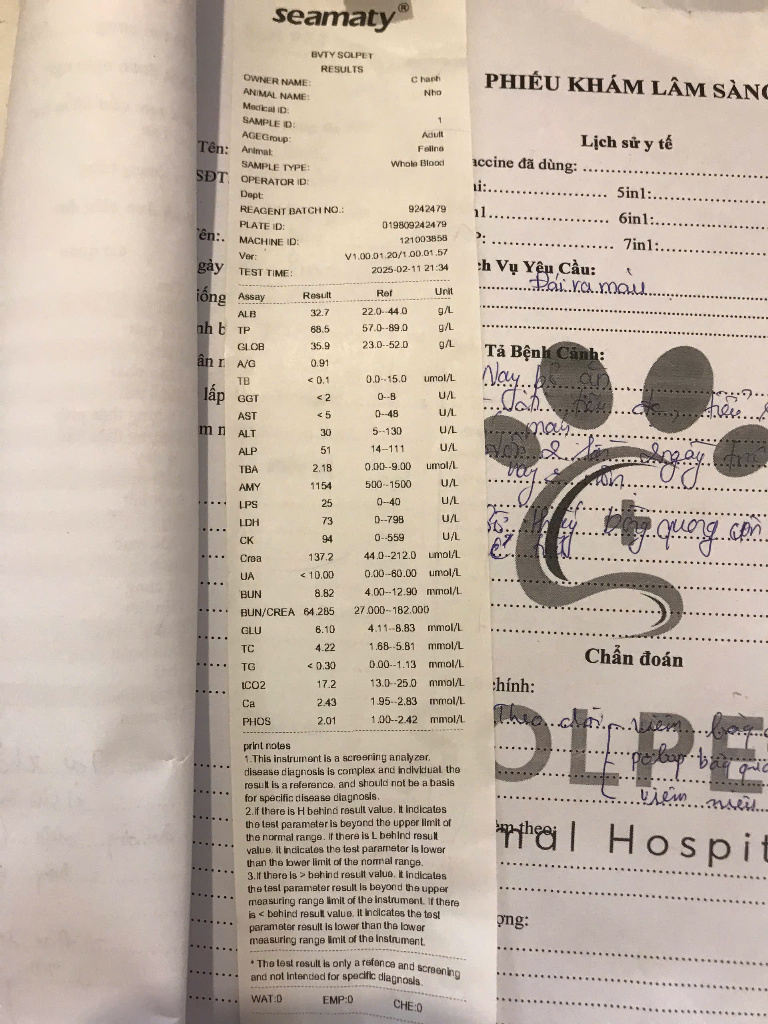 seamaty®
BVTY SOLPET
RESULTS
OWNER NAME: C hanh
ANIMAL NAME: Nho
Medical ID:
SAMPLE ID: 1
AGEGroup: Adult
Animal: Feline
SAMPLE TYPE: Whole Blood
OPERATOR ID:
Dept:
REAGENT BATCH NO.: 9242479
PLATE ID: 019809242479
MACHINE ID: 121003858
Ver: V1.00.01.20/1.00.01.57
TEST TIME: 2025-02-11 21:34
Assay Result Ref Unit
ALB 32.7 22.0--44.0 g/L
TP 68.5 57.0--89.0 g/L
GLOB 35.9 23.0--52.0 g/L
A/G 0.91
TB < 0.1 0.0--15.0 umol/L
GGT < 2 0--8 U/L
AST < 5 0--48 U/L
ALT 30 5--130 U/L
ALP 51 14--111 U/L
TBA 2.18 0.00--9.00 umol/L
AMY 1154 500--1500 U/L
LPS 25 0--40 U/L
LDH 73 0--798 U/L
CK 94 0--559 U/L
Crea 137.2 44.0--212.0 umol/L
UA < 10.00 0.00--60.00 umol/L
BUN 8.82 4.00--12.90 mmol/L
BUN/CREA 64.285 27.000--182.000
GLU 6.10 4.11--8.83 mmol/L
TC 4.22 1.68--5.81 mmol/L
TG < 0.30 0.00--1.13 mmol/L
tCO2 17.2 13.0--25.0 mmol/L
Ca 2.43 1.95--2.83 mmol/L
PHOS 2.01 1.00--2.42 mmol/L
print notes
1.This instrument is a screening analyzer,
disease diagnosis is complex and individual, the
result is a reference, and should not be a basis
for specific disease diagnosis.
2.If there is H behind result value, it indicates
the test parameter is beyond the upper limit of
the normal range. If there is L behind result
value, it indicates the test parameter is lower
than the lower limit of the normal range.
3.If there is > behind result value, it indicates
the test parameter result is beyond the upper
measuring range limit of the instrument. If there
is < behind result value, it indicates the test
parameter result is lower than the lower
measuring range limit of the instrument.
* The test result is only a refence and screening
and not intended for specific diagnosis.
WAT:0 EMP:0 CHE:0
Tên:
SĐT
ên:
gày
iống
nh b
ân n
lấp
m n
PHIẾU KHÁM LÂM SÀNG
Lịch sử y tế
accine đã dùng:
i: 5in1:
1 6in1:
P: 7in1:
ch Vụ Yêu Cầu:
Đái ra máu
Tả Bệnh Cảnh:
Nay bỏ ăn
máu
ngày
bàng quang còn
Chẩn đoán
chính:
Theo dõi viêm bàng
bàng qua
viêm
OLPE
êm theo:
mal Hospit
ợng: